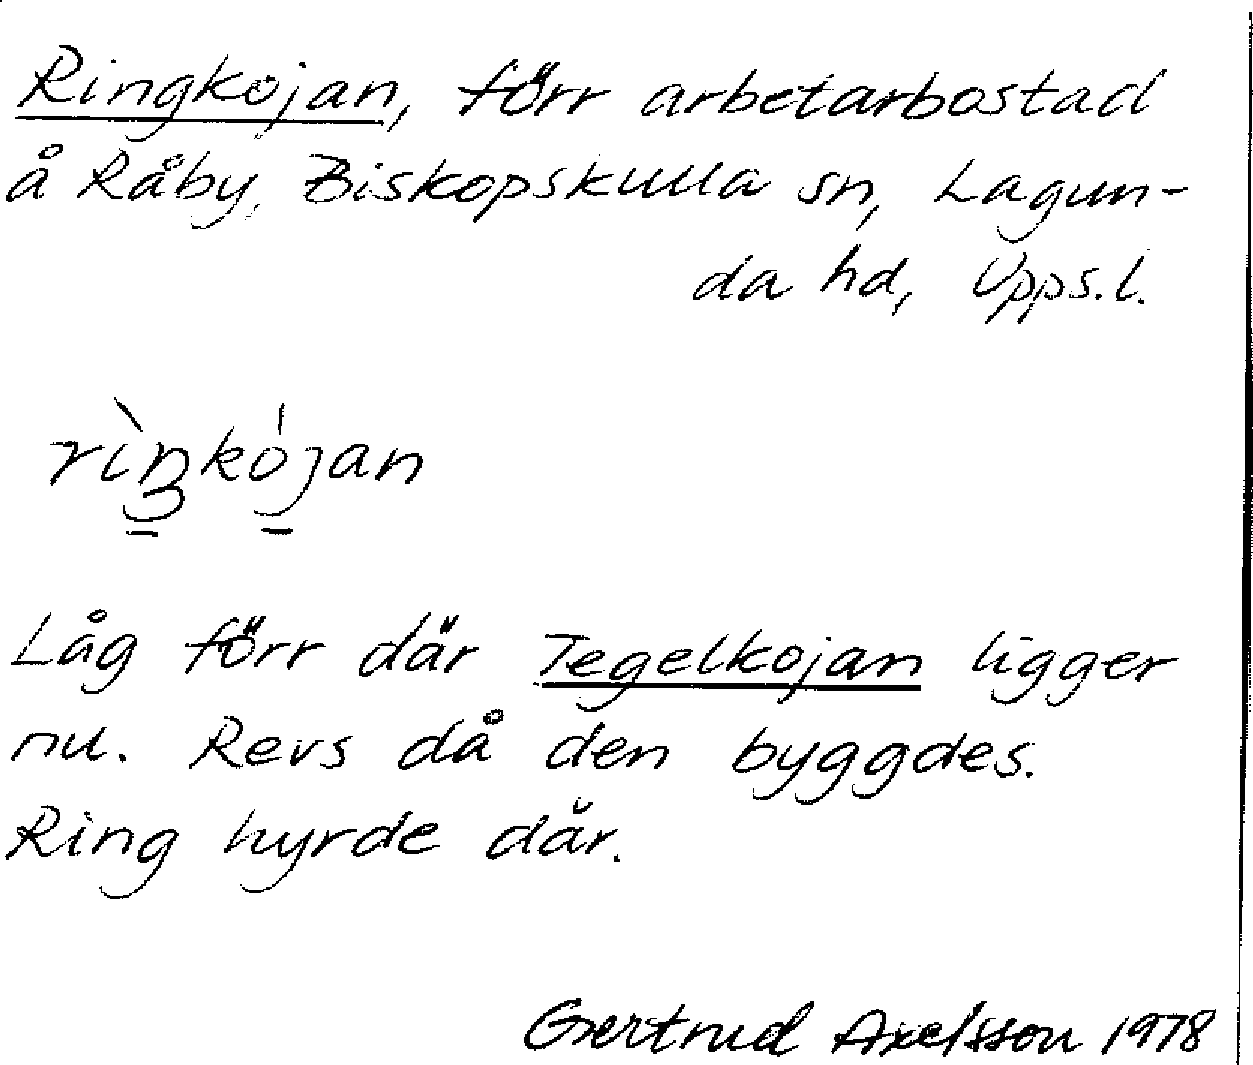 Ringkojan, förr arbetarbostad
å Råby, Biskopskulla sn, Lagun-
da hd, Upps.l.
rìŋ̱kó̱jan
Låg förr där Tegelkojan ligger
nu. Revs då den byggdes.
Ring hyrde där.
Gertrud Axelsson 1978